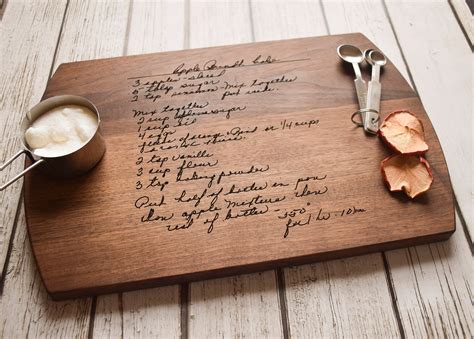 Apple Cake
3 apples - sliced
5 tbsp sugar
2 tsp cinnamon Mix together
Mix together
2 cup sugar
1 cup oil
4 eggs
juice of orange or 1/4 cup
2 tsp vanilla
3 cup flour
3 tsp baking powder
Put half of batter in pan
then apple mixture then
rest of batter - 350°
for 1 hr - 10 min